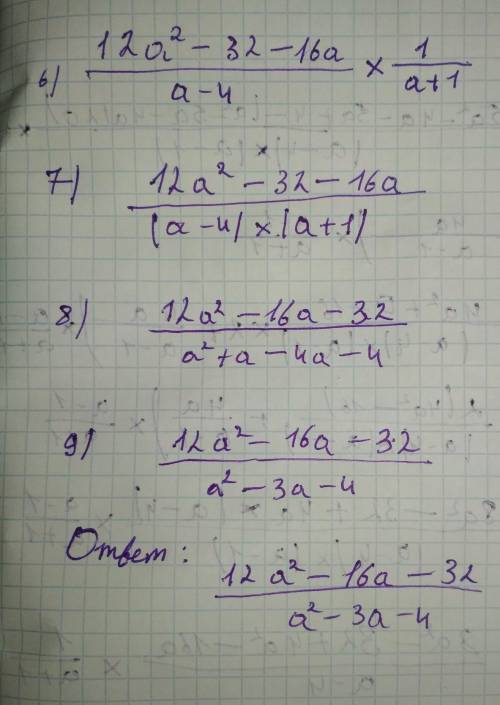 6) (12a² - 32 - 16a)/(a - 4) × 1/(a+1)
7) (12a² - 32 - 16a)/((a - 4) × (a + 1))
8) (12a² - 16a - 32)/(a² + a - 4a - 4)
9) (12a² - 16a - 32)/(a² - 3a - 4)
Ответ: (12a² - 16a - 32)/(a² - 3a - 4)